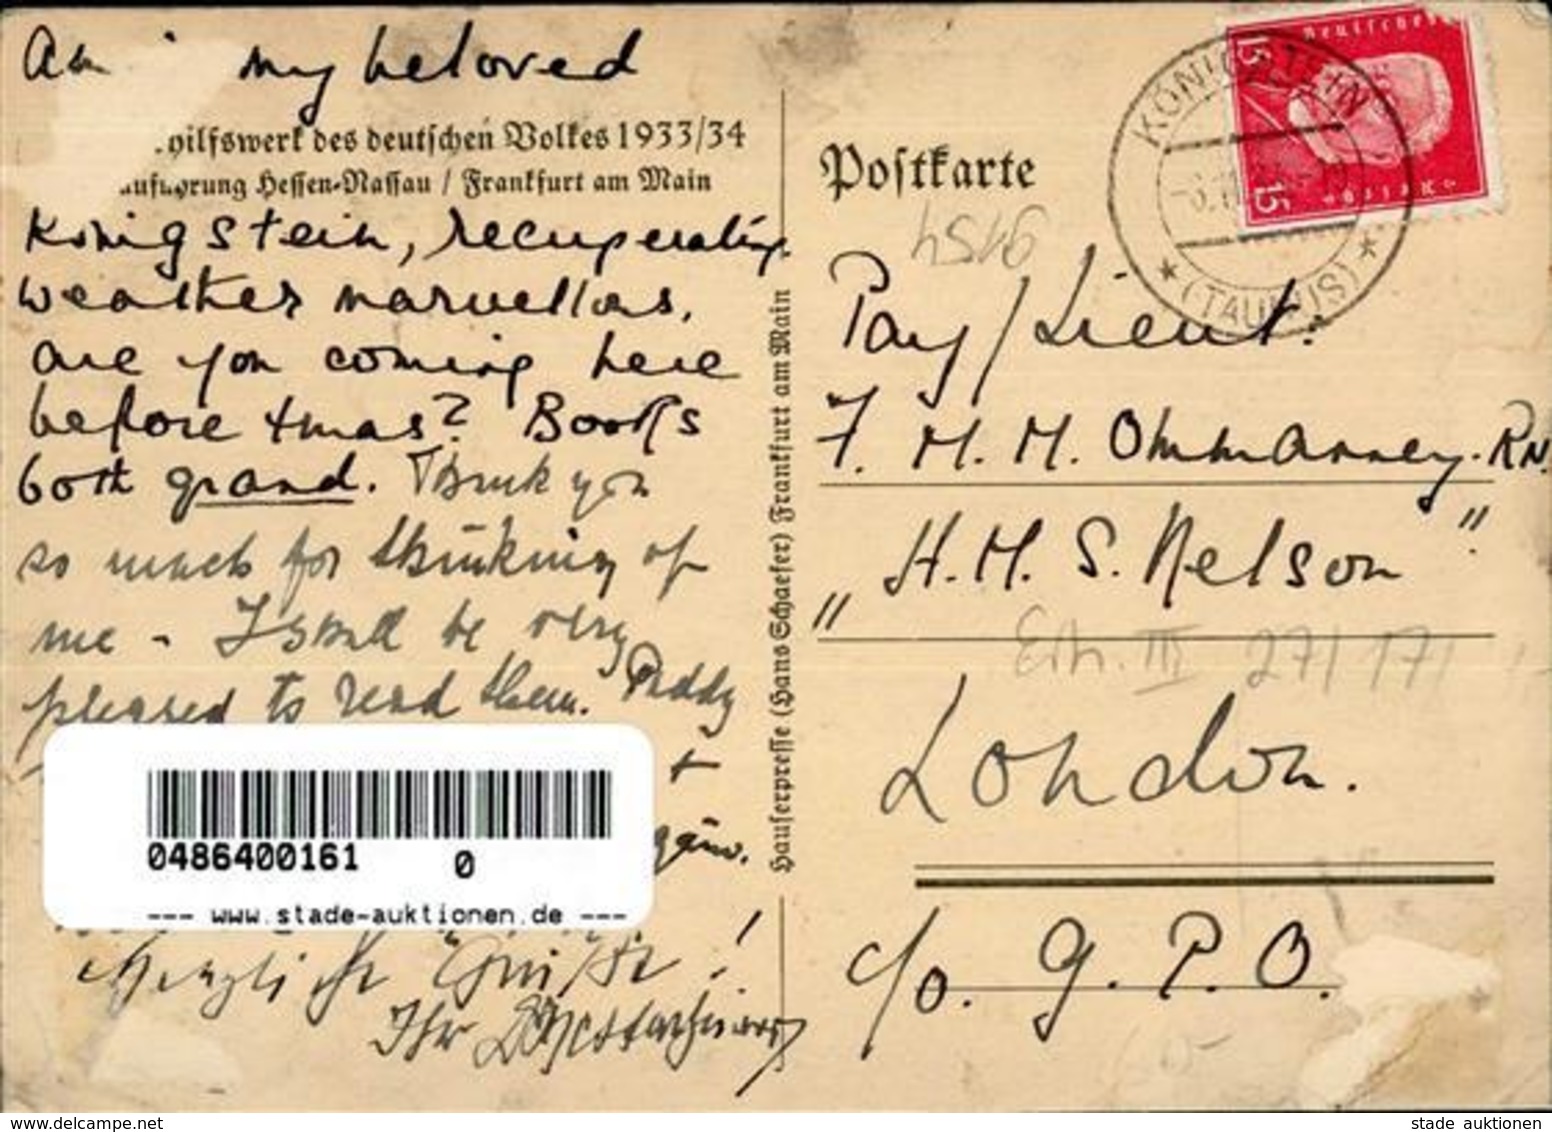 Am in my beloved
hilfswerk des deutschen Volkes 1933/34
führung Hessen-Nassau / Frankfurt am Main
Königstein, recuperating.
weather marvellous.
are you coming here
before Xmas? Books
both grand. Thank you
so much for thinking of
me - I shall be very
pleased to read them. Paddy
+
0486400161 0
--- www.stade-auktionen.de ---
Herzliche Grüße!
Ihr
Hauserpresse (Hans Schaefer) Frankfurt am Main
Postkarte
Deutsches
15
15
KÖNIGSTEIN
(TAUNUS)
Pay/Lieut.
F. M. M. Ommanney. RN.
"H. M. S. Nelson"
London.
c/o. G. P. O.
27/17/
stade auktionen
www.delcampe.net